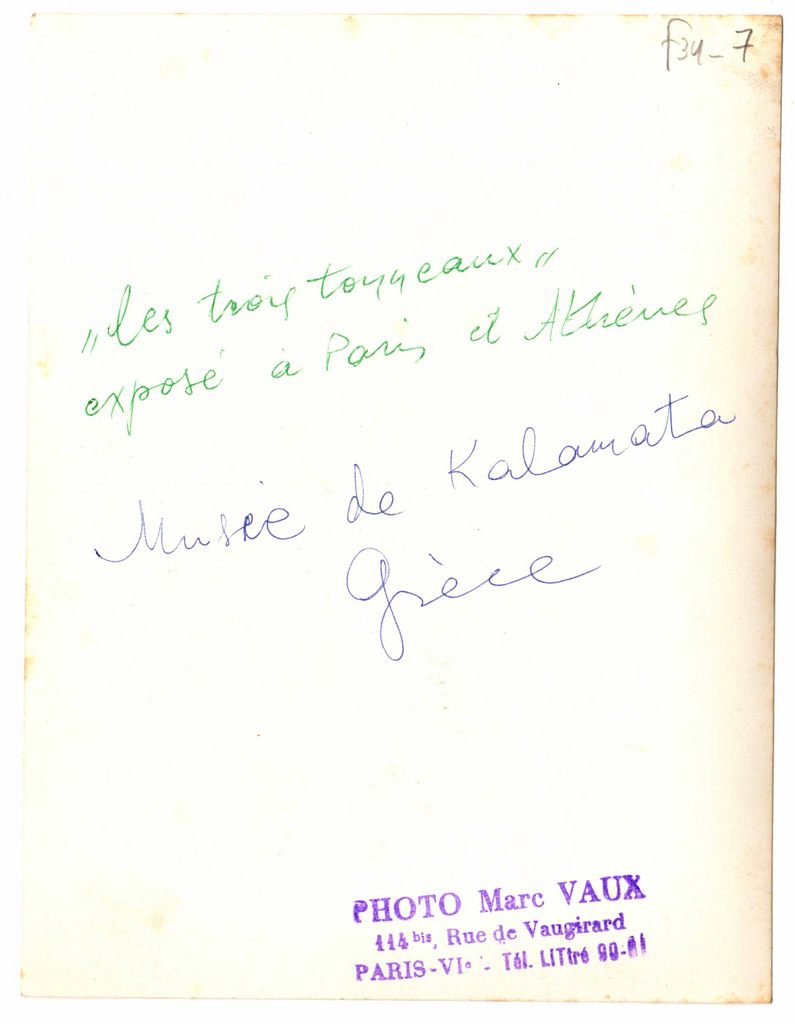 f34-7
„les trois tonneaux„
exposé à Paris et Athènes
Musée de Kalamata
Grèce
PHOTO Marc VAUX
114 bis, Rue de Vaugirard
PARIS-VIe - Tél. LITtré 90-81